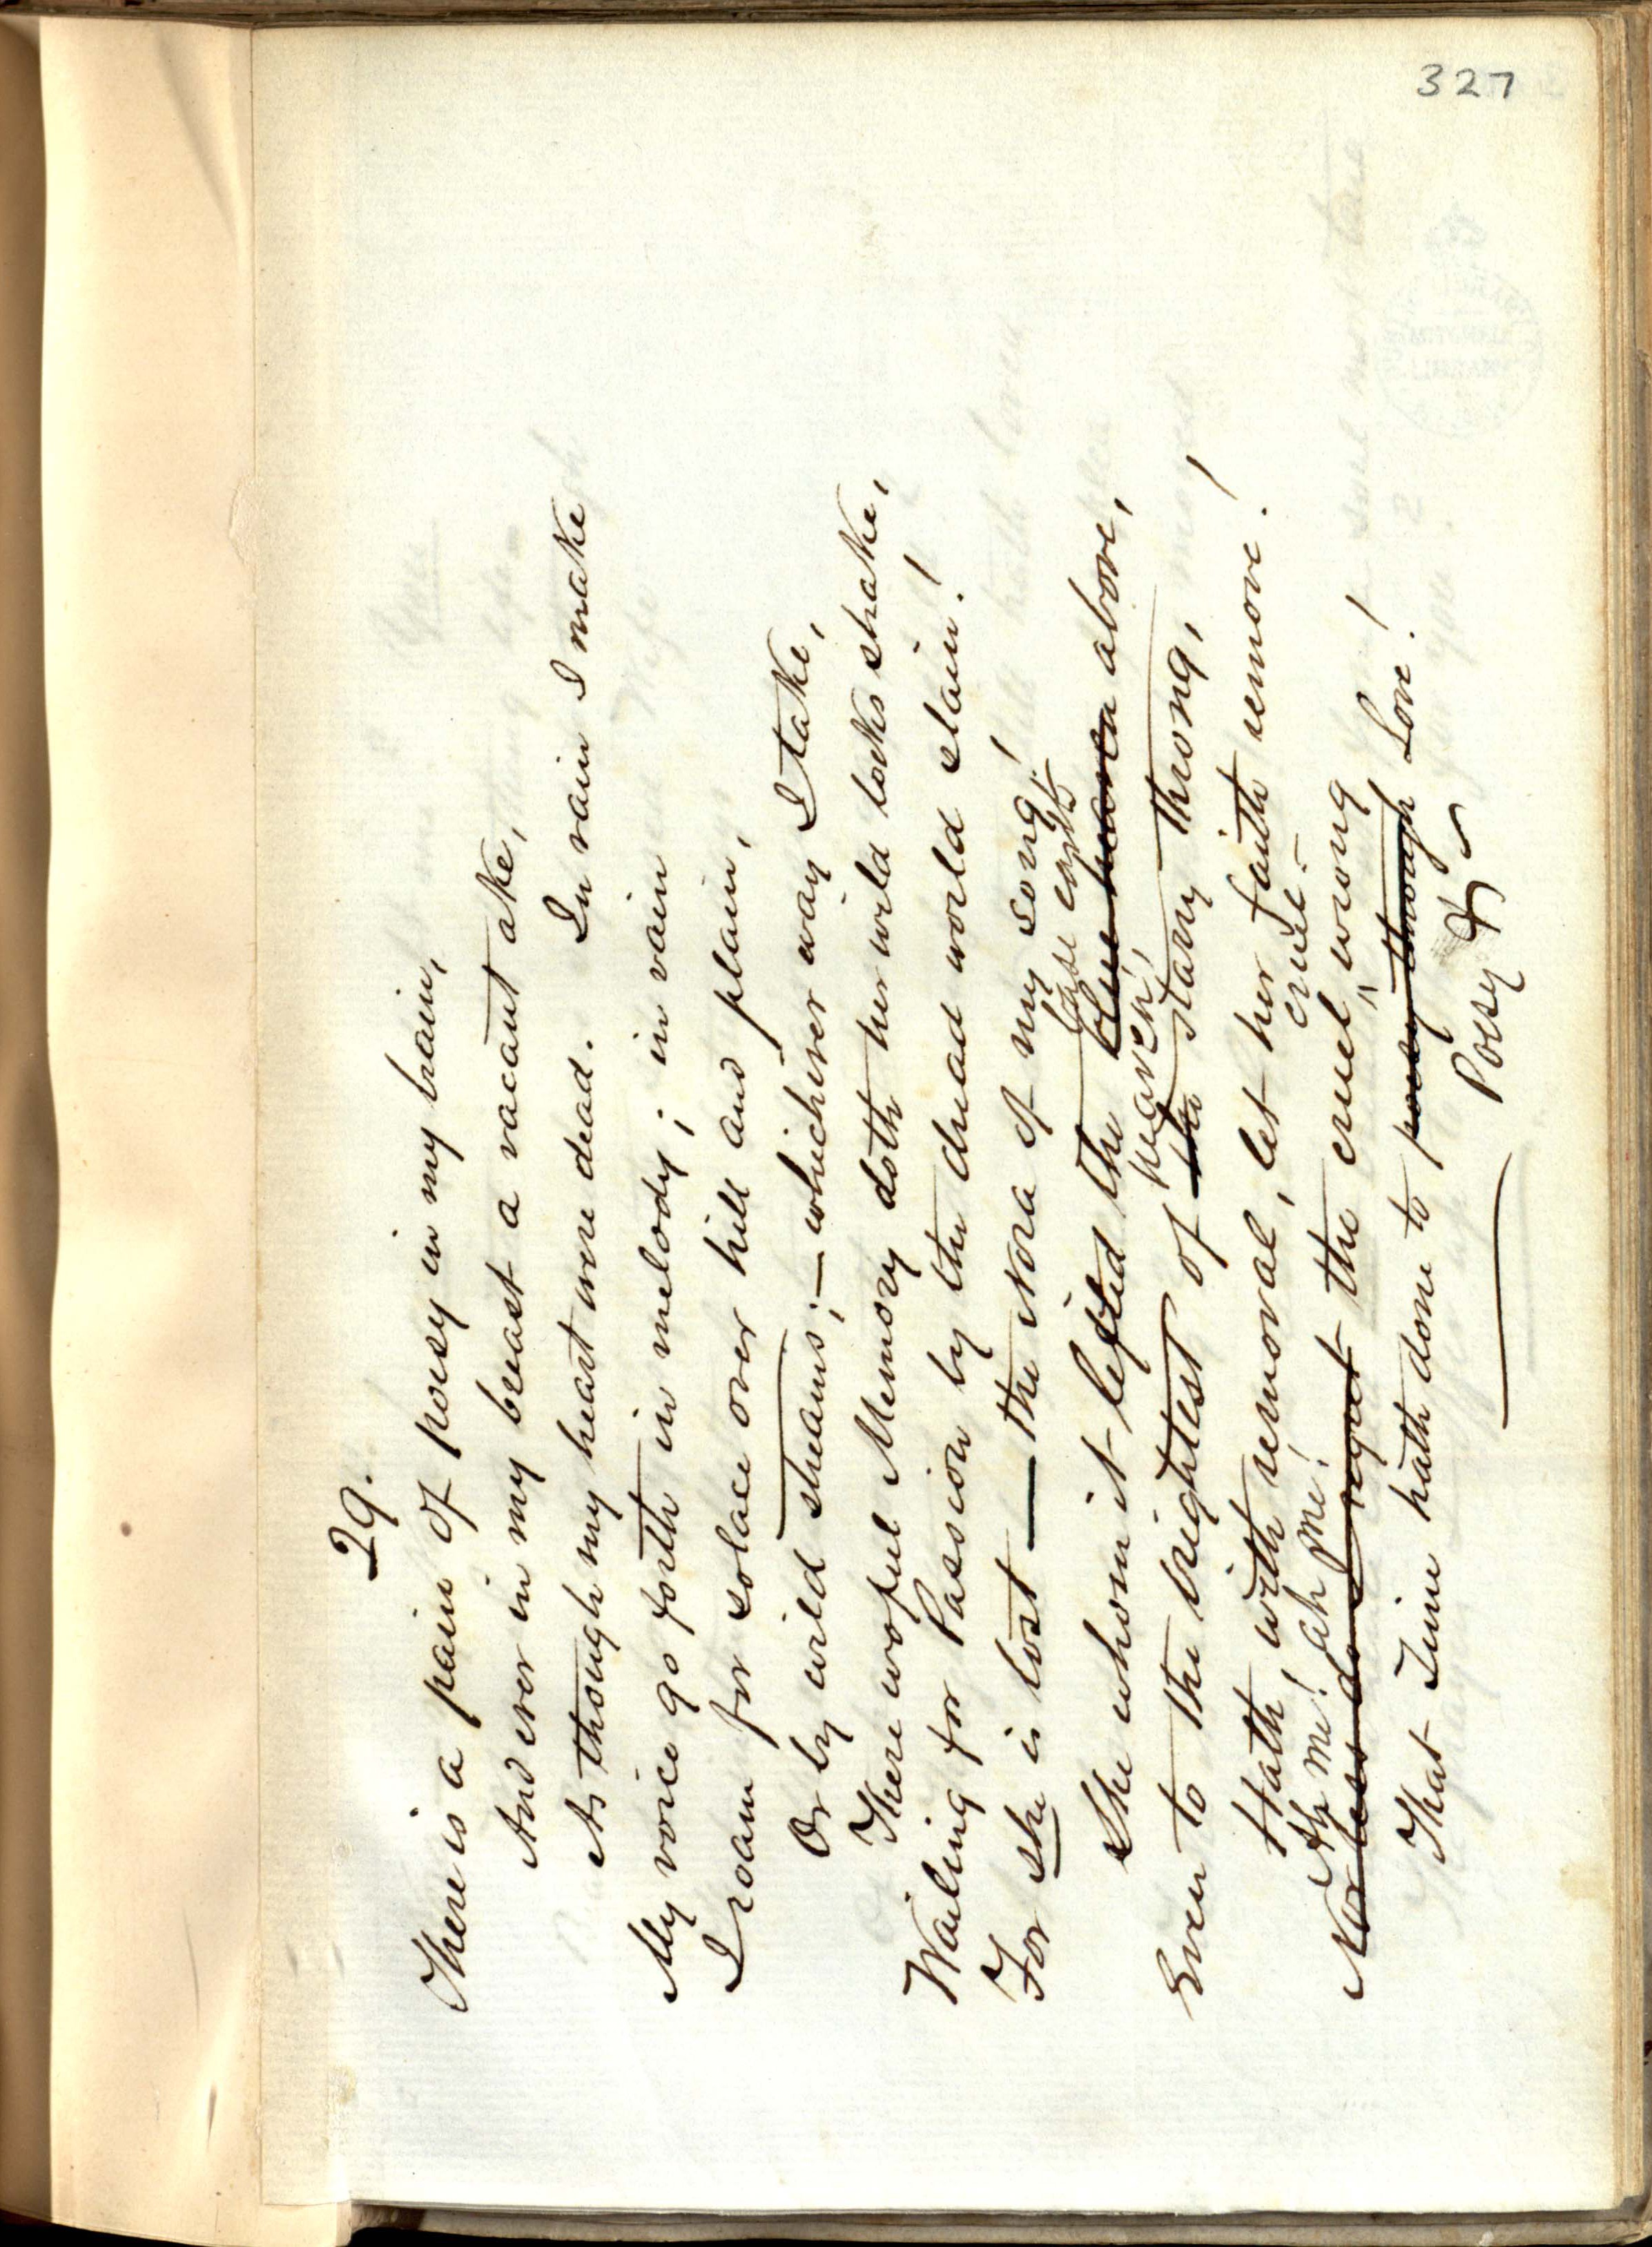 327
29.
There is a pain of poesy in my brain,
And ever in my breast a vacant ake,
As though my heart were dead. In vain I make
My voice go forth in melody; in vain
I roam for solace over hill and plain,
Or by wild streams; — whichever way I take,
There woful Memory doth her wild locks shake,
Wailing for Passion by the dread world slain!
For she is lost — the Nora of my song!
false earth
She whom it lifted the blue heaven above,
heaven's
Even to the brightest of the starry throng,
Hath, with removal, let her faith remove!
Ah me! ah me! cruel -
Nor less do I regret the cruel ^ wrong
That Time hath done to poesy through Love!
Poesy &